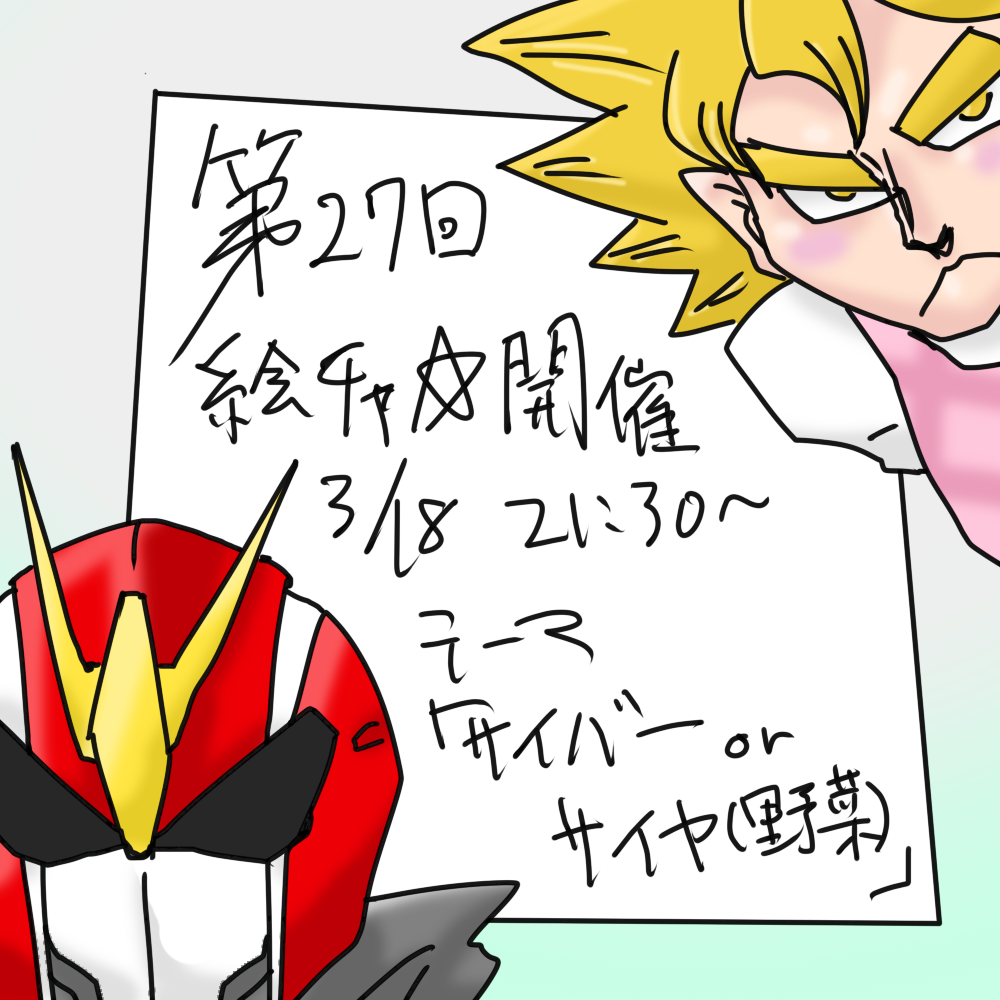 第27回
絵チャ☆開催
3/18 21:30～
テーマ
「サイバー or
サイヤ(野菜)」